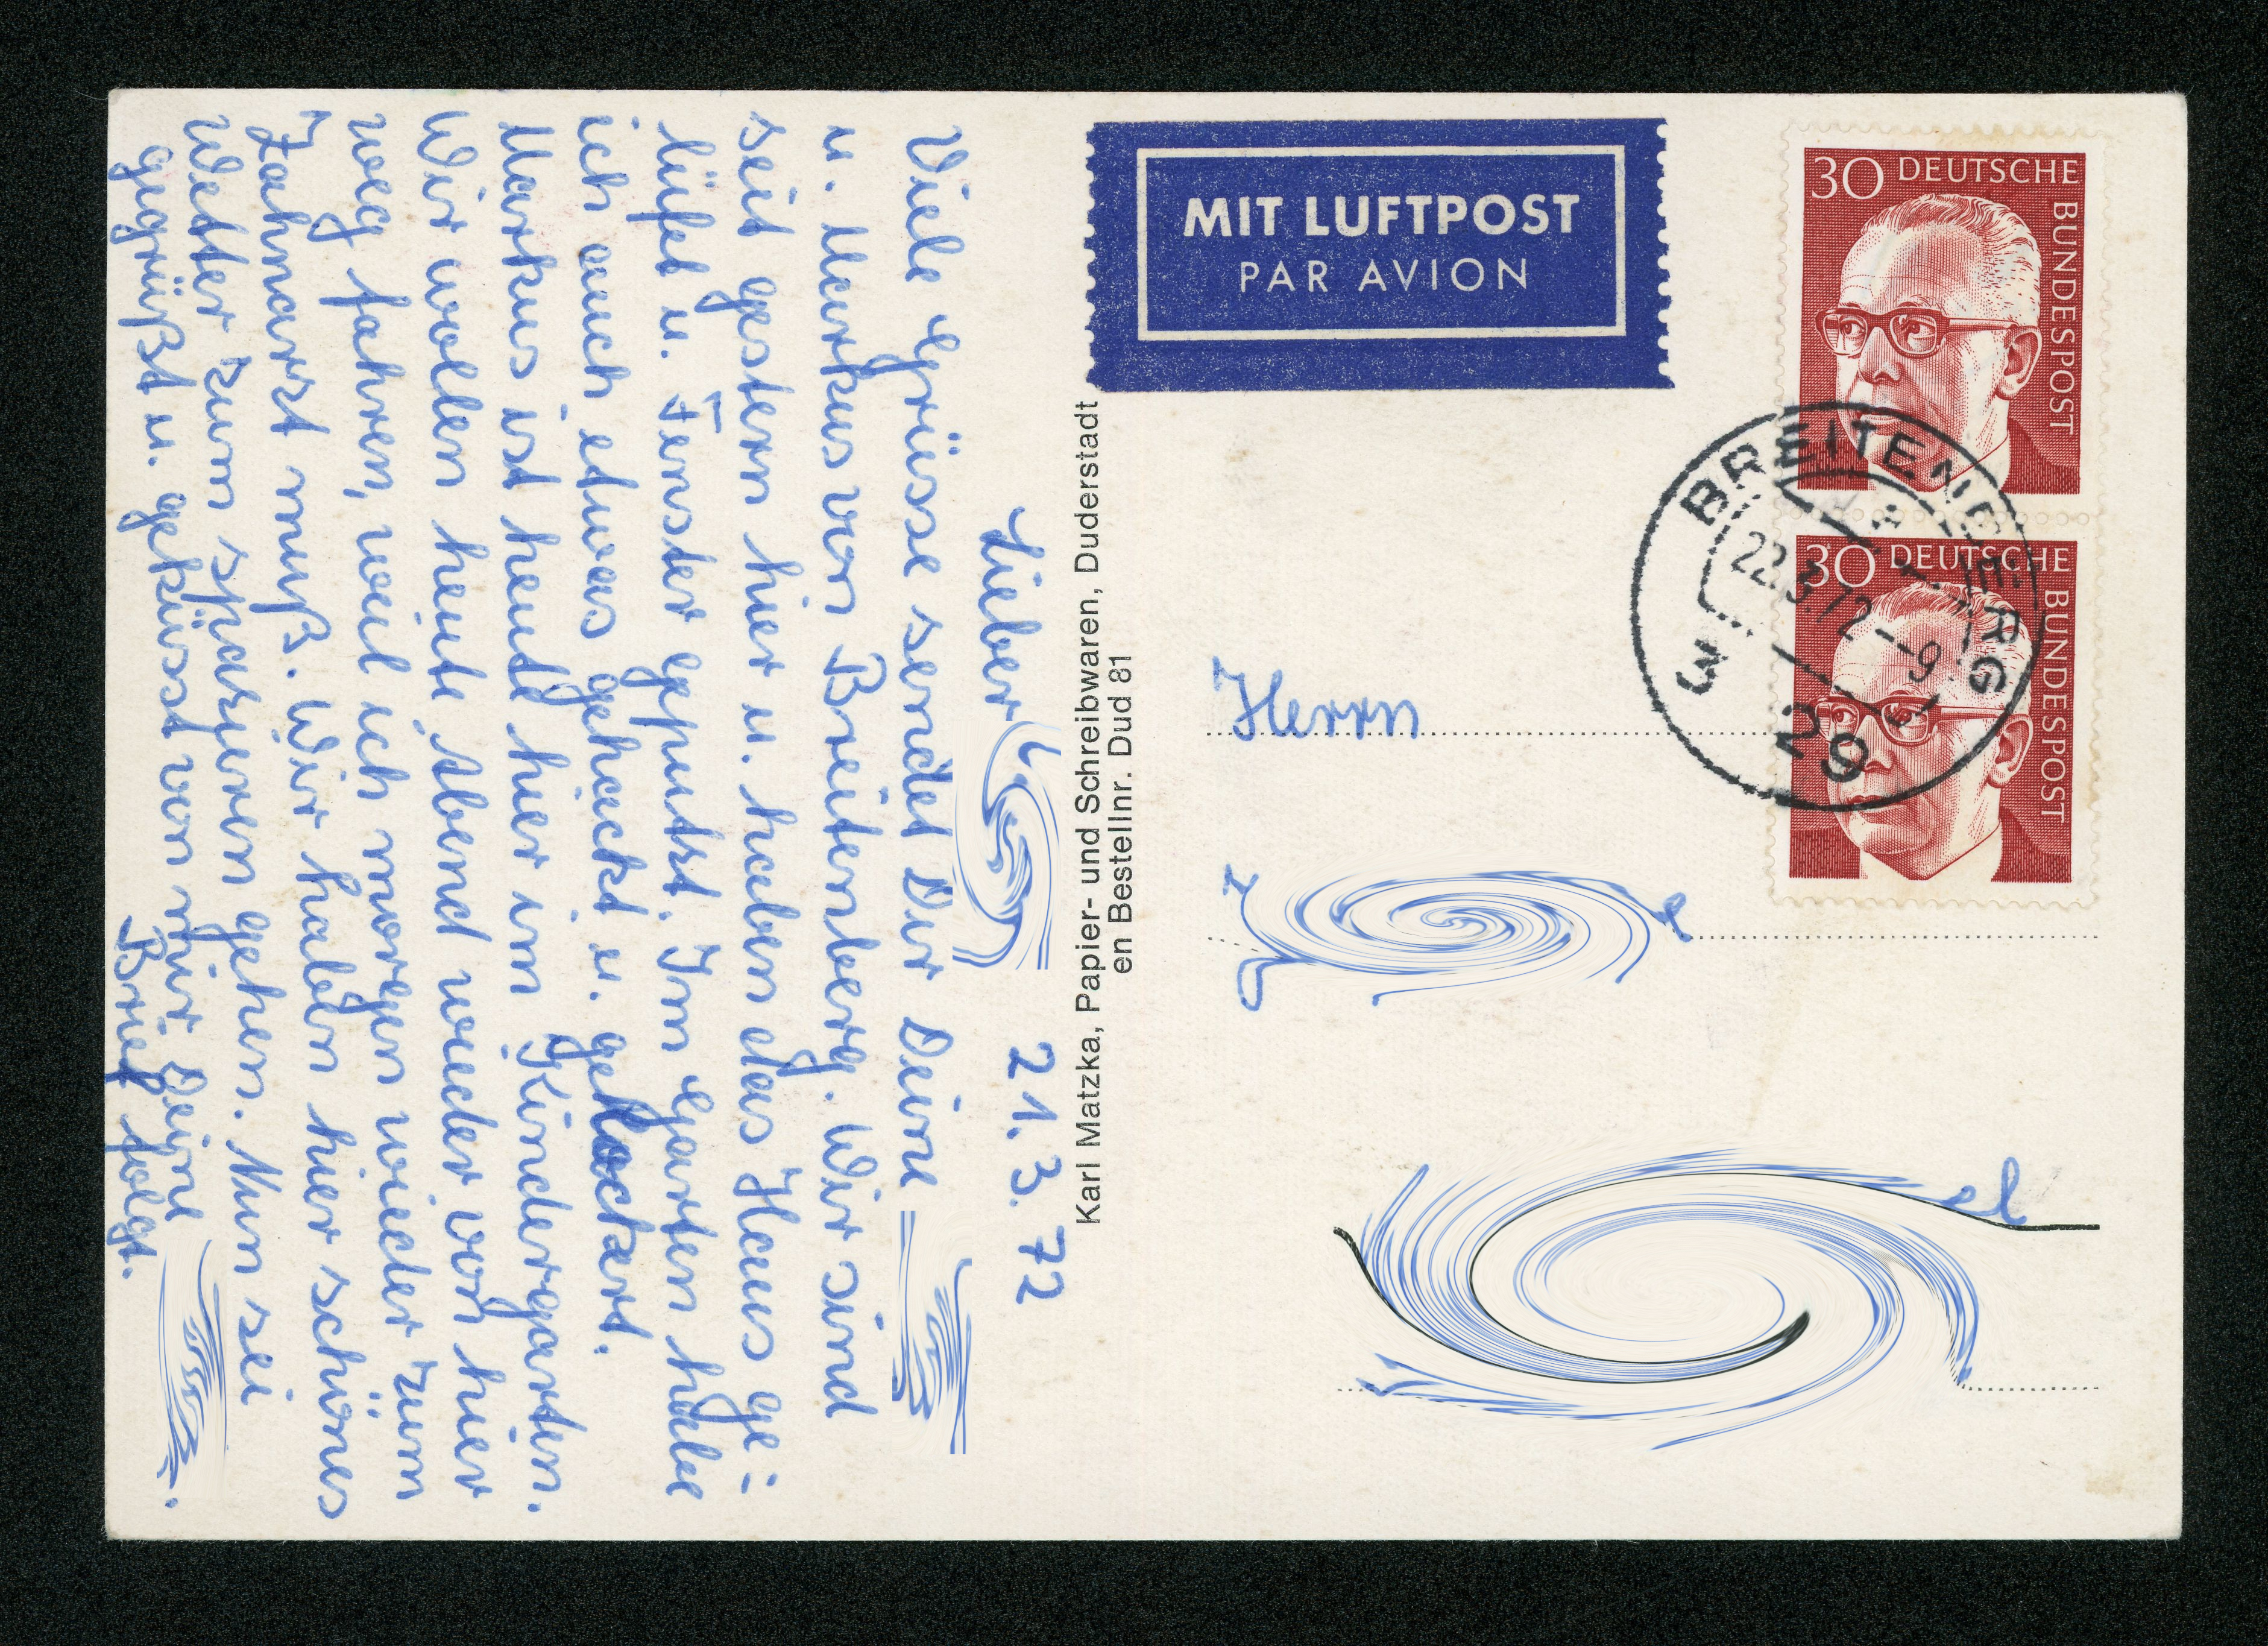 Lieber 21.3.72
Viele Grüsse sendet Dir Deine
u. Markus von Breitenberg. Wir sind
seit gestern hier u. haben das Haus ge-
lüftet u. Fenster geputzt. Im Garten habe
ich auch etwas gehackt u. gelockert.
Markus ist heute hier im Kindergarten.
Wir wollen heute Abend wieder von hier
weg fahren, weil ich morgen wieder zum
Zahnarzt muß. Wir haben hier schönes
Wetter zum spazieren gehen. Nun sei
gegrüßt u. geküsst von mir Deine
Brief folgt.
Karl Matzka, Papier- und Schreibwaren, Duderstadt
en Bestellnr. Dud 81
MIT LUFTPOST
PAR AVION
30 DEUTSCHE BUNDESPOST
30 DEUTSCHE BUNDESPOST
BREITENBERG
22.3.72-9
3
29
Herrn